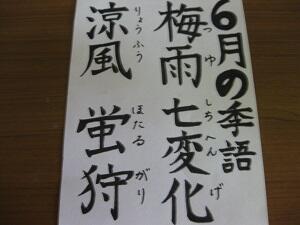 6月の季語
梅雨 七変化
つゆ しちへんげ
涼風 蛍狩
りょうふう ほたるがり